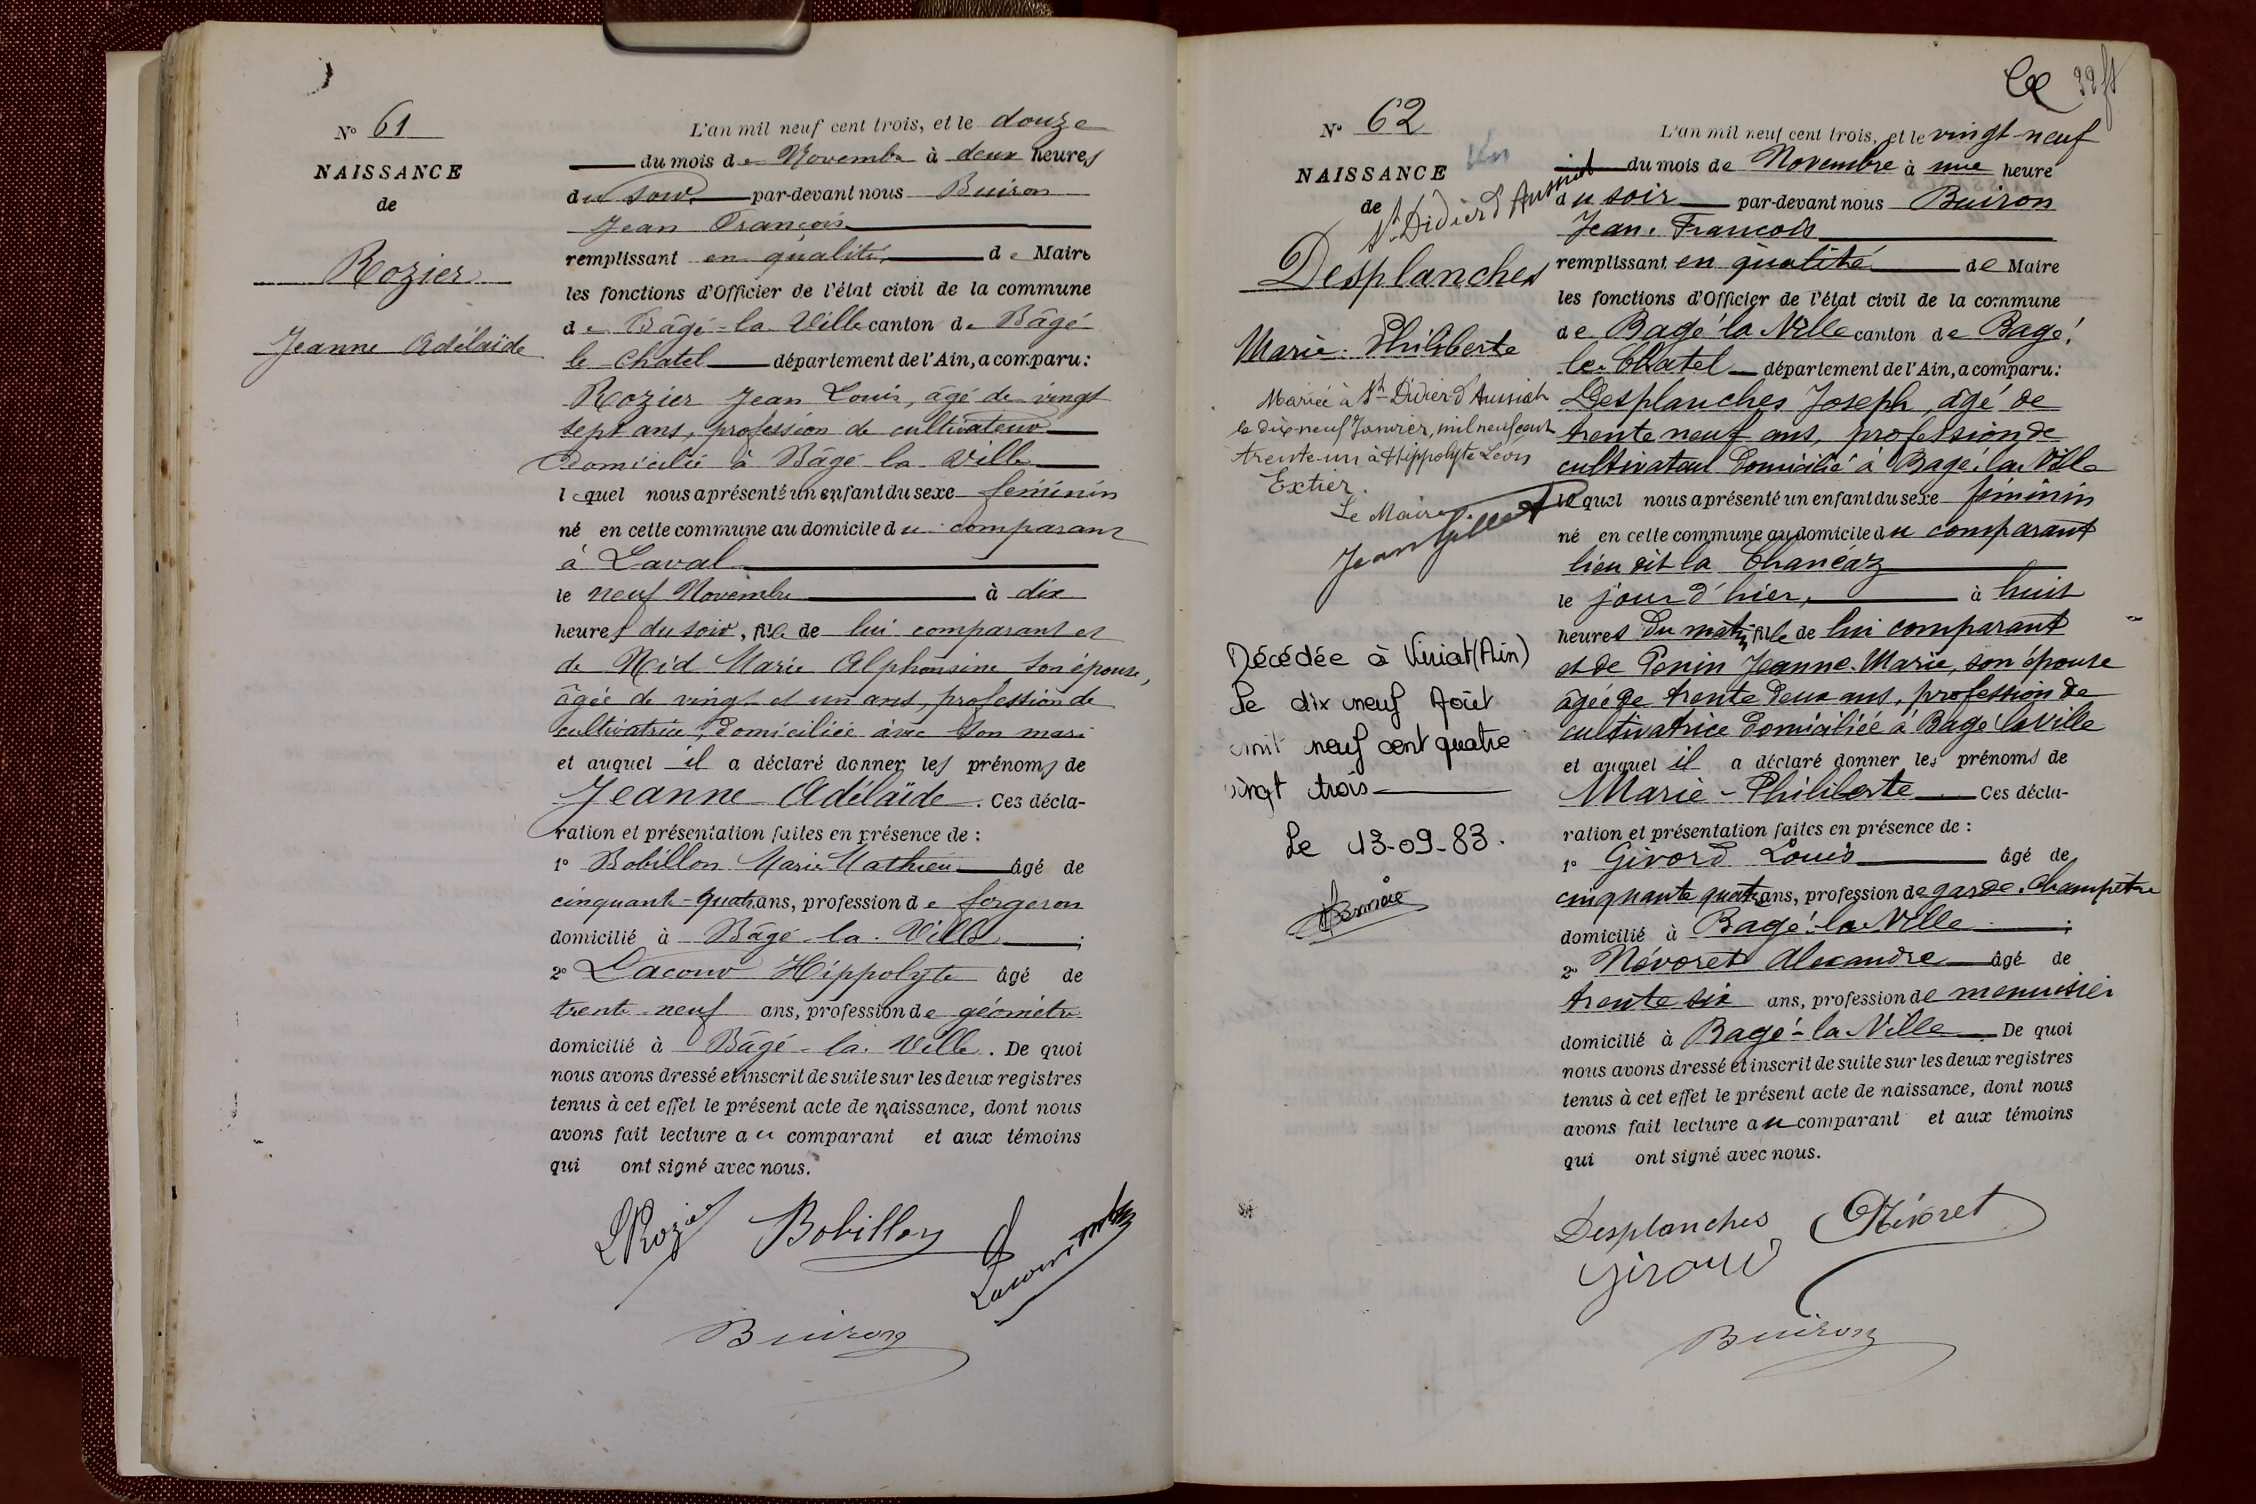 N° 61
NAISSANCE
de
Rozier
Jeanne Adélaïde
L'an mil neuf cent trois, et le douze
du mois de Novembre à deux heures
du soir, par-devant nous Buiron
Jean François
remplissant en qualité de Maire
les fonctions d'Officier de l'état civil de la commune
de Bâgé-la-Ville canton de Bâgé
le Chatel département de l'Ain, a comparu:
Rozier Jean Louis, âgé de vingt
sept ans, profession de cultivateur
Domicilié à Bâgé la Ville
lequel nous a présenté un enfant du sexe féminin
né en cette commune au domicile du comparant
à Laval
le neuf Novembre à dix
heures du soir, fille de lui comparant et
de Nid Marie Alphonsine son épouse,
âgée de vingt et un ans, profession de
cultivatrice, domiciliée avec son mari
et auquel il a déclaré donner les prénoms de
Jeanne Adélaïde. Ces décla-
ration et présentation faites en présence de :
1° Bobillon Marie Mathieu âgé de
cinquante-quatre ans, profession de forgeron
domicilié à Bâgé-la-Ville ;
2° Lacour Hippolyte âgé de
trente-neuf ans, profession de géomètre
domicilié à Bâgé-la-Ville. De quoi
nous avons dressé et inscrit de suite sur les deux registres
tenus à cet effet le présent acte de naissance, dont nous
avons fait lecture au comparant et aux témoins
qui ont signé avec nous.
LRozier Bobillon
Buiron
N° 62
NAISSANCE
de
St Didier d'Aussiat
Desplanches
Marie-Philiberte
Mariée à St Didier d'Aussiat
le dix-neuf Janvier, mil neuf cent
trente-un à Hippolyte Léon
Extier.
Le Maire.
Décédée à Viriat (Ain)
Le dix neuf Août
mil neuf cent quatre
vingt trois
Le 13-09-83.
L'an mil neuf cent trois, et le vingt-neuf
du mois de Novembre à une heure
du soir par-devant nous Buiron
Jean-François
remplissant en qualité de Maire
les fonctions d'Officier de l'état civil de la commune
de Bagé la Ville canton de Bagé
le-Chatel département de l'Ain, a comparu:
Desplanches Joseph, âgé de
trente neuf ans, profession de
cultivateur domicilié à Bagé-la-Ville
lequel nous a présenté un enfant du sexe féminin
né en cette commune au domicile du comparant
lieu dit la Chanéaz
le jour d'hier, à huit
heures du matin fille de lui comparant
et de Penin Jeanne-Marie, son épouse
âgée de trente deux ans, profession de
cultivatrice domiciliée à Bagé la Ville
et auquel il a déclaré donner les prénoms de
Marie-Philiberte Ces décla-
ration et présentation faites en présence de :
1° Givord Louis âgé de
cinquante quatre ans, profession de garde-champêtre
domicilié à Bagé-la-Ville ;
2° Névoret Alexandre âgé de
trente six ans, profession de menuisier
domicilié à Bagé-la-Ville De quoi
nous avons dressé et inscrit de suite sur les deux registres
tenus à cet effet le présent acte de naissance, dont nous
avons fait lecture au comparant et aux témoins
qui ont signé avec nous.
Desplanches Névoret
Givord
Buiron